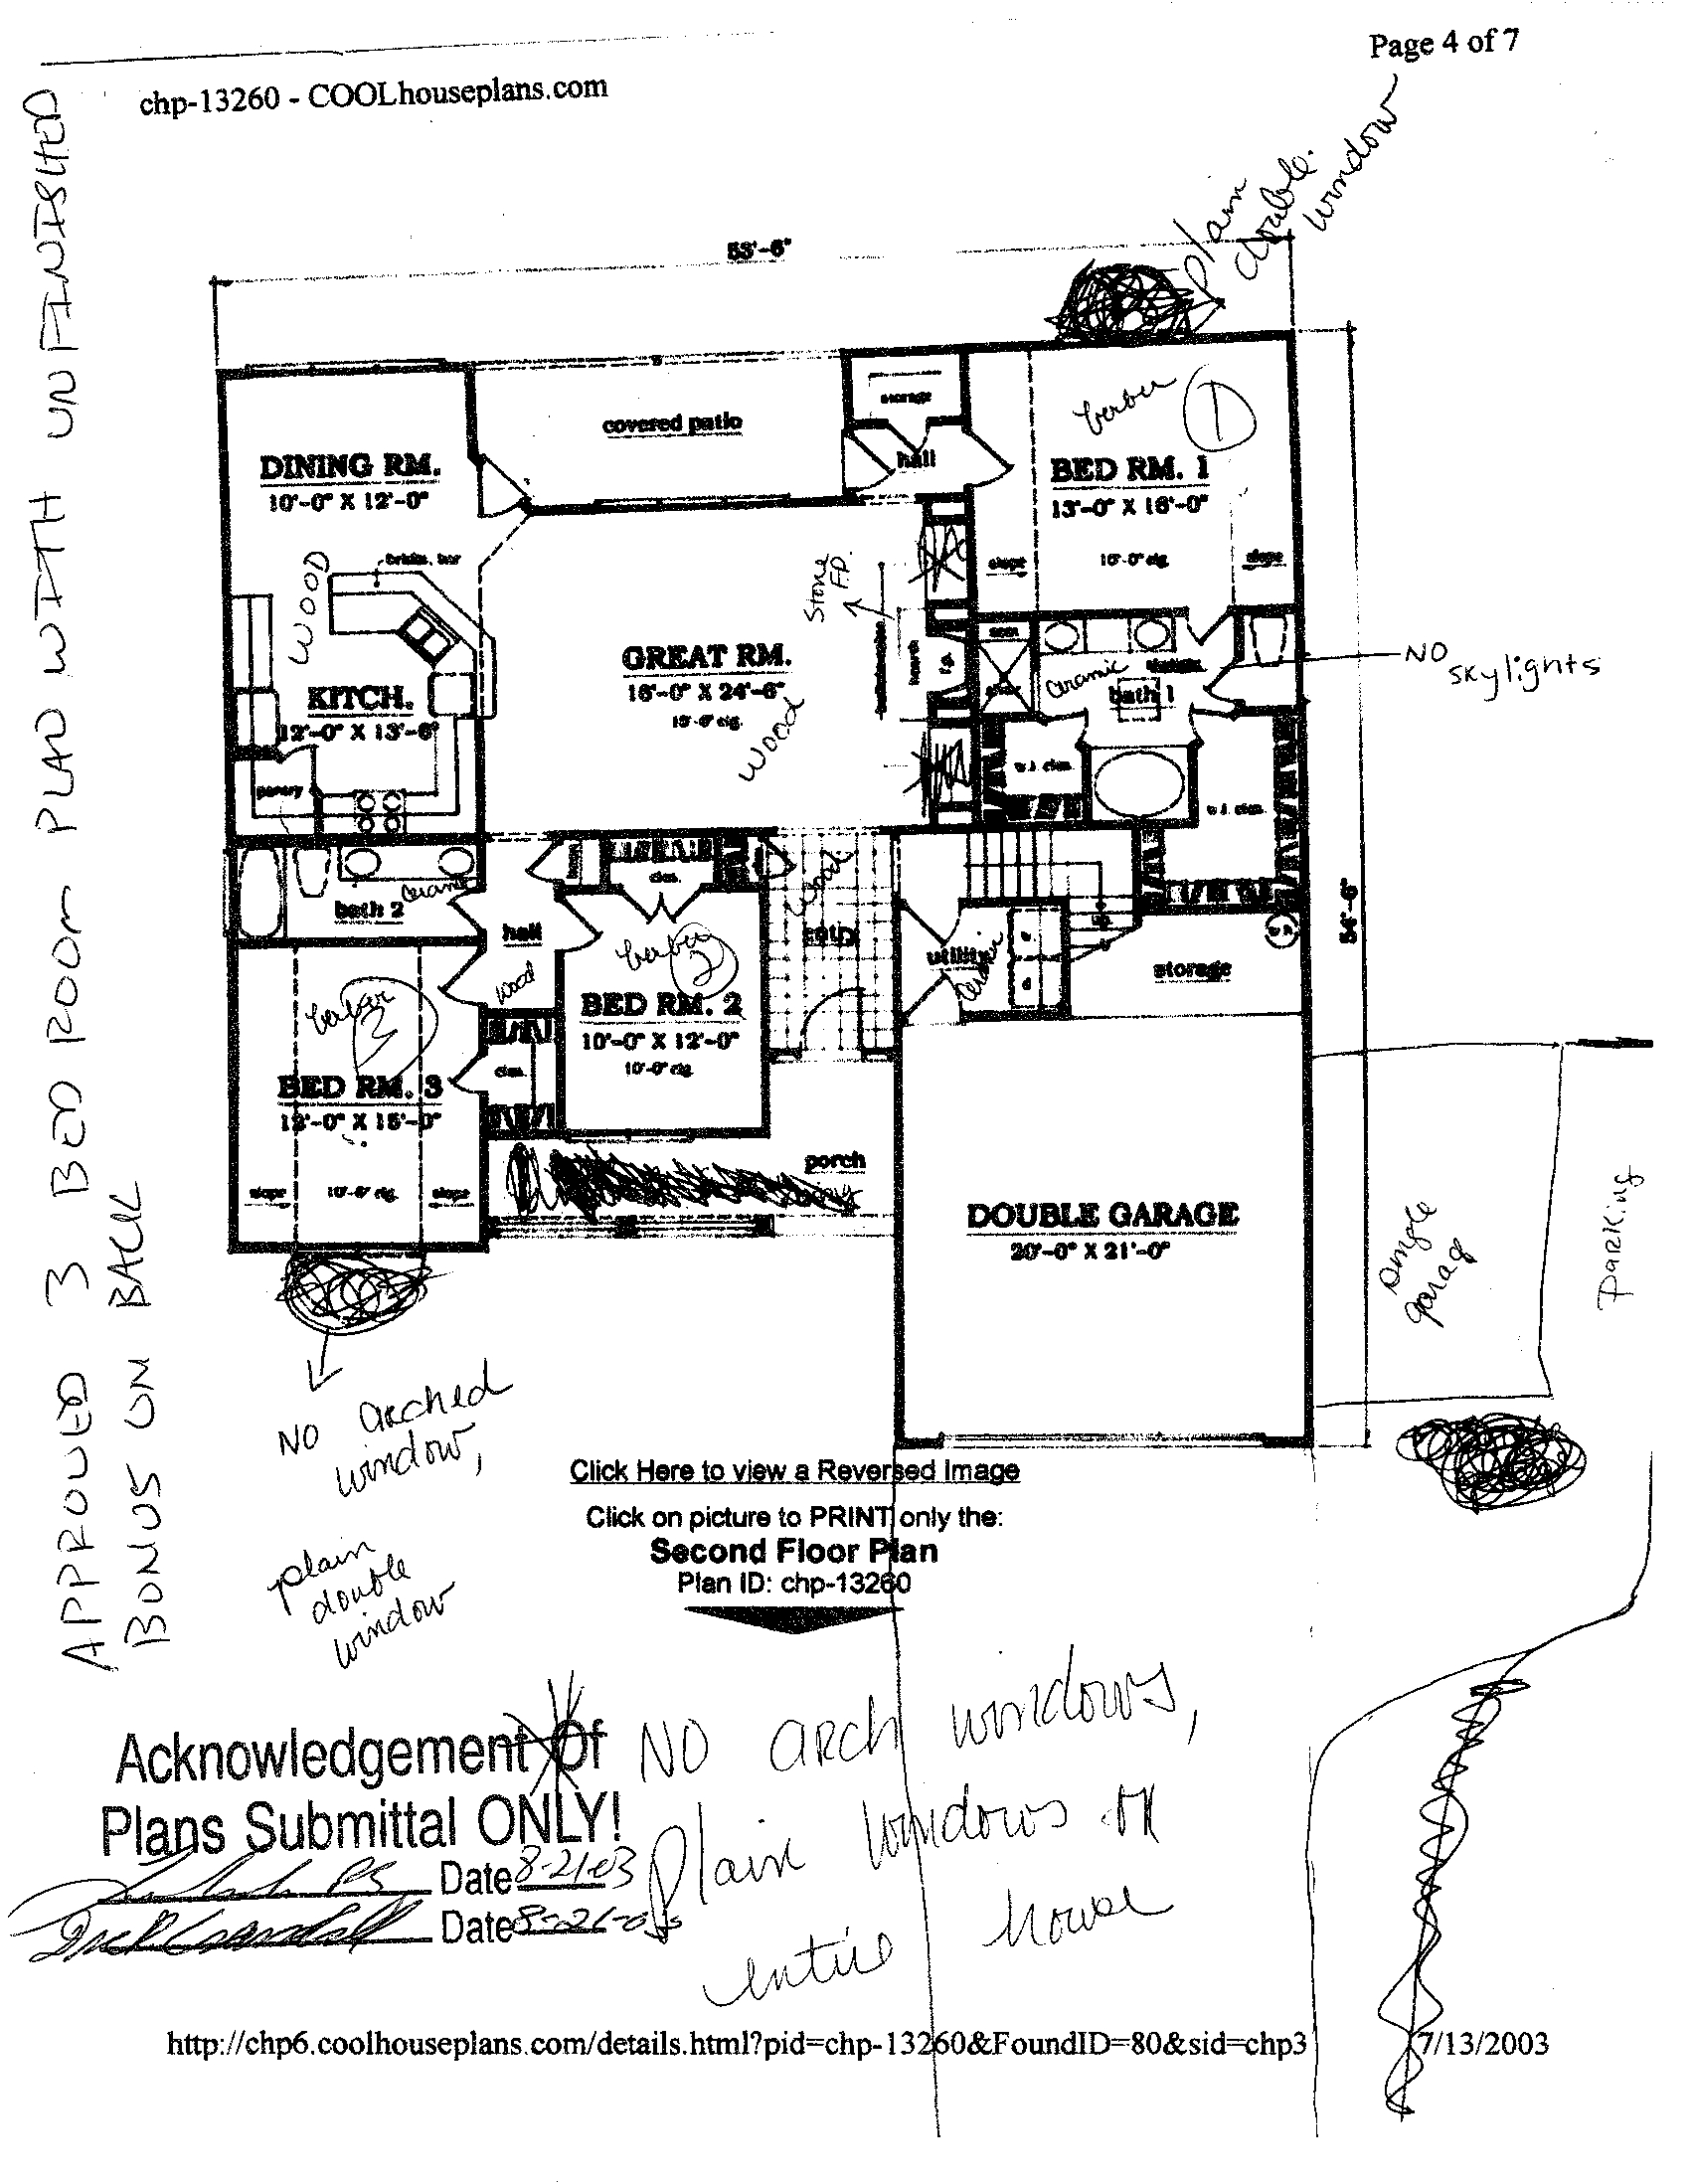 Page 4 of 7
chp-13260 - COOLhouseplans.com
plain
double
window
53'-6"
APPROVED 3 BED ROOM PLAD WITH UNFINISHED
BONUS ON BACK
storage
covered patio
hall
berber
1
DINING RM.
10'-0" X 12'-0"
BED RM. 1
13'-0" X 16'-0"
slope
10'-0" clg.
slope
WOOD
Stone
F.P.
hearth
f.p.
GREAT RM.
16'-0" X 24'-6"
wood
KITCH.
12'-0" X 13'-6"
pantry
seat
skylight
ceramic
bath 1
NO
skylights
w.i. clos.
w.i. clos.
ceramic
bath 2
hall
wood
linen
clos.
wood
entry
berber
2
BED RM. 2
10'-0" X 12'-0"
10'-0" clg.
up
utility
w
d
storage
54'-6"
berber
3
BED RM. 3
12'-0" X 15'-0"
clos.
slope
10'-6" clg.
slope
porch
DOUBLE GARAGE
20'-0" X 21'-0"
single
garag
PARKing
NO arched
window,
plain
double
window
Click Here to view a Reversed Image
Click on picture to PRINT only the:
Second Floor Plan
Plan ID: chp-13260
Acknowledgement Of
Plans Submittal ONLY!
Date 8-21-03
Date 8-21-03
NO ARCh windows,
plain windows on
entire house
http://chp6.coolhouseplans.com/details.html?pid=chp-13260&FoundID=80&sid=chp3
7/13/2003